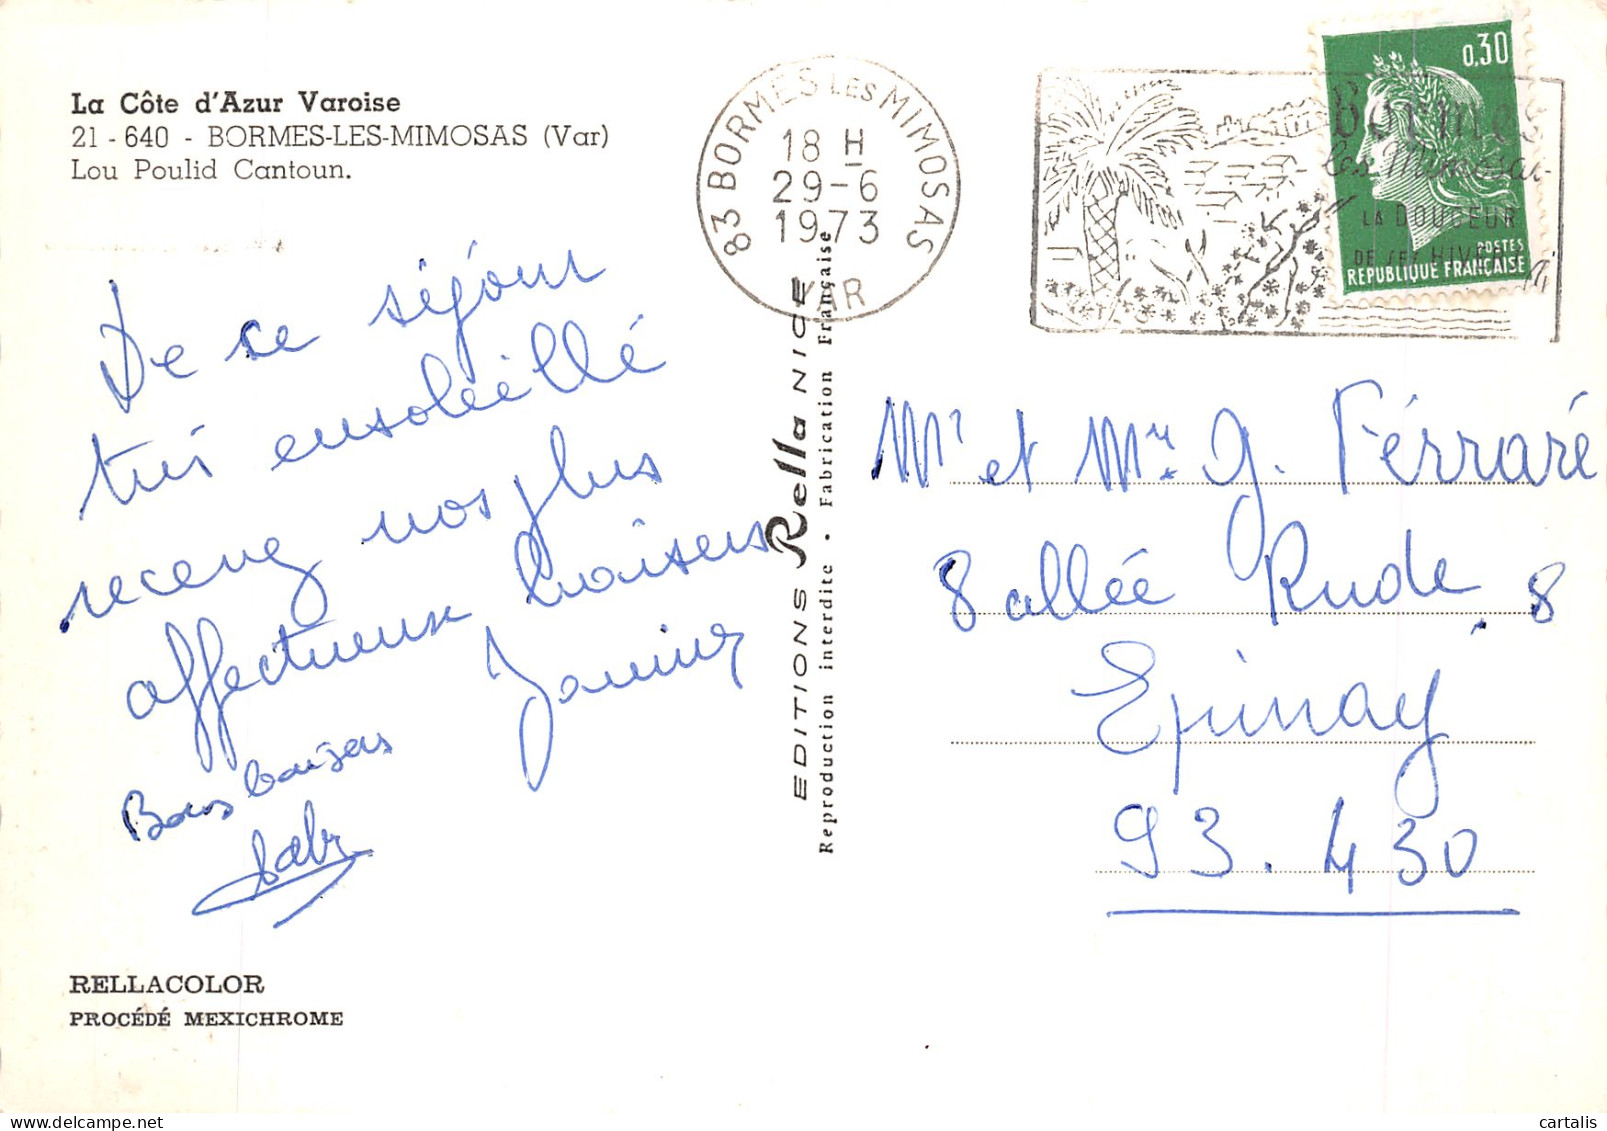 La Côte d'Azur Varoise
21 - 640 - BORMES-LES-MIMOSAS (Var)
Lou Poulid Cantoun.
De ce séjour
très ensoleillé
recevez nos plus
affectueux baisers
Janine
Bons baisers
RELLACOLOR
PROCÉDÉ MEXICHROME
EDITIONS Rella NICE
Reproduction interdite • Fabrication Française
83 BORMES LES MIMOSAS
18 H
29-6
1973
VAR
Bormes
les Mimosas
LA DOUCEUR
DE SES HIVERS
0,30
POSTES
REPUBLIQUE FRANÇAISE
Mr et Mme G. Férraré
8 allée Rude. 8
Epinay
93.430
cartalis